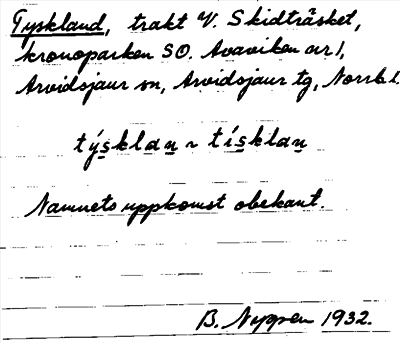 Tyskland, trakt V. Skidträsket,
kronoparken SO. Avaviken cr 1,
Arvidsjaur sn, Arvidsjaur tg, Norrb. l.
týsklan ~ tísklan
Namnets uppkomst obekant.
B. Nygren 1932.